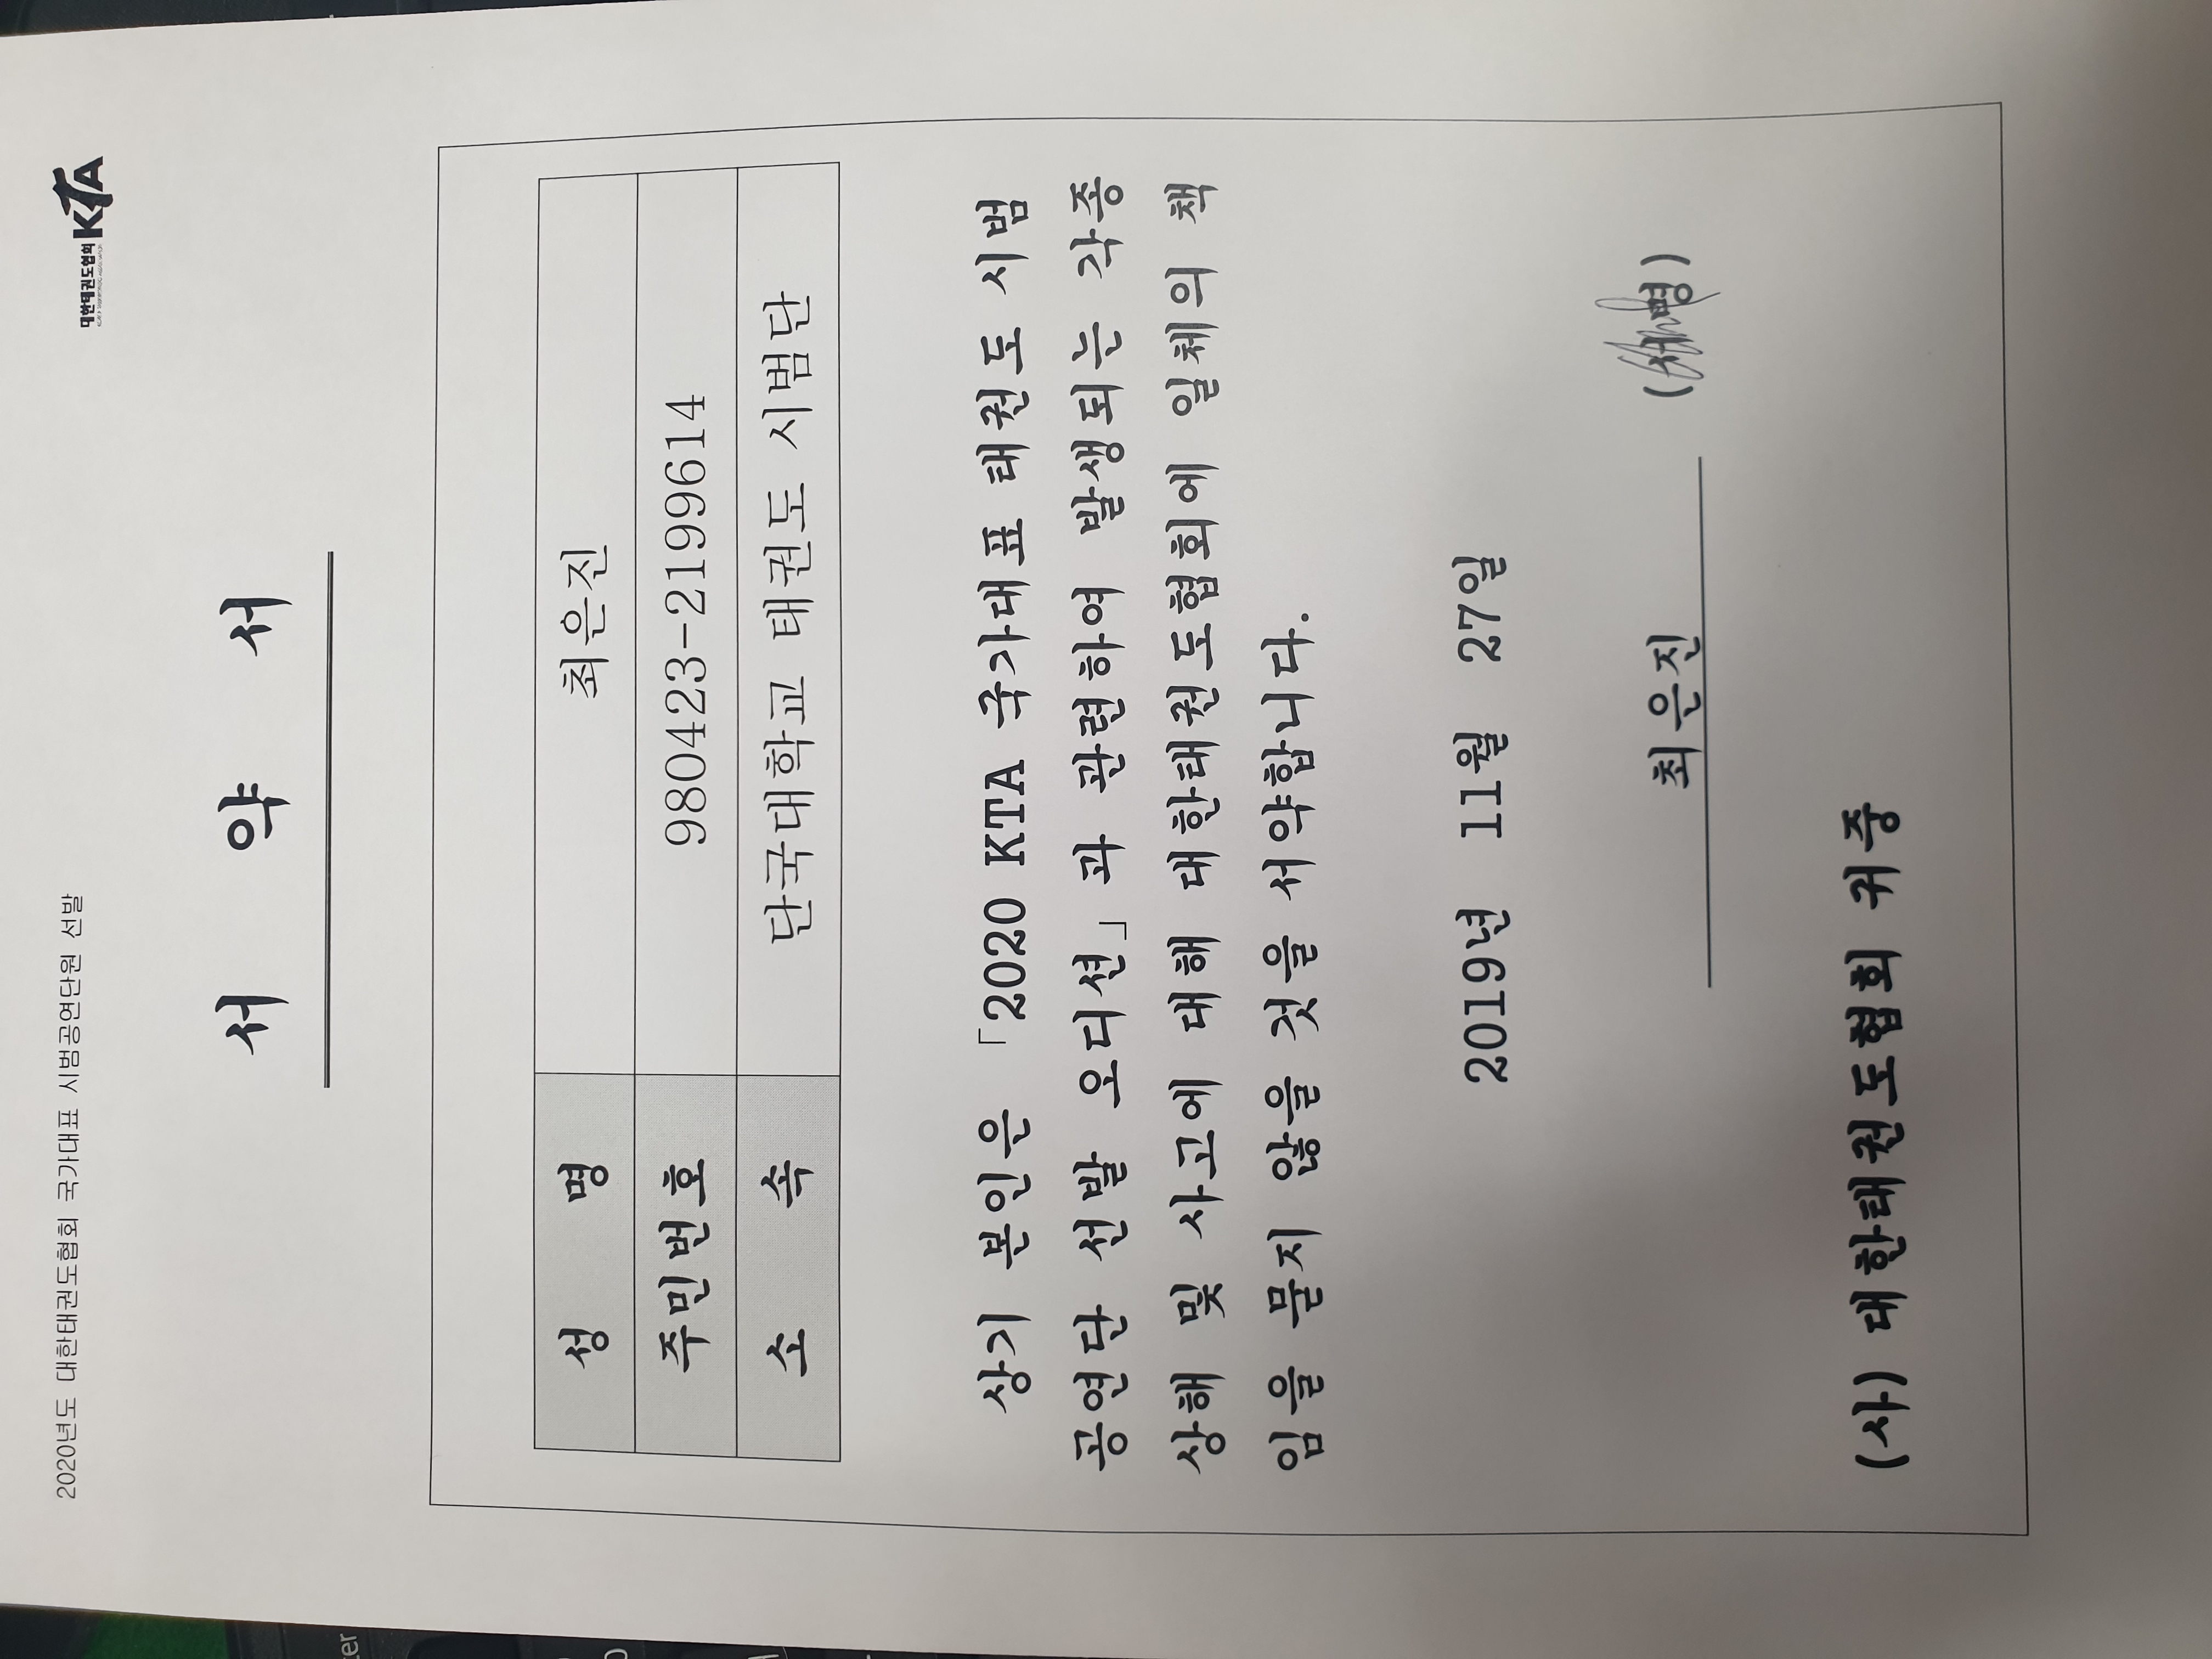 2020년도 대한태권도협회 국가대표 시범공연단원 선발
대한태권도협회 KTA
서 약 서
성 명 최은진
주민번호 980423-2199614
소 속 단국대학교 태권도 시범단
상기 본인은 「2020 KTA 국가대표 태권도 시범
공연단 선발 오디션」과 관련하여 발생되는 각종
상해 및 사고에 대해 대한태권도협회에 일체의 책
임을 묻지 않을 것을 서약합니다.
2019년 11월 27일
최은진 (서명)
(사) 대한태권도협회 귀중